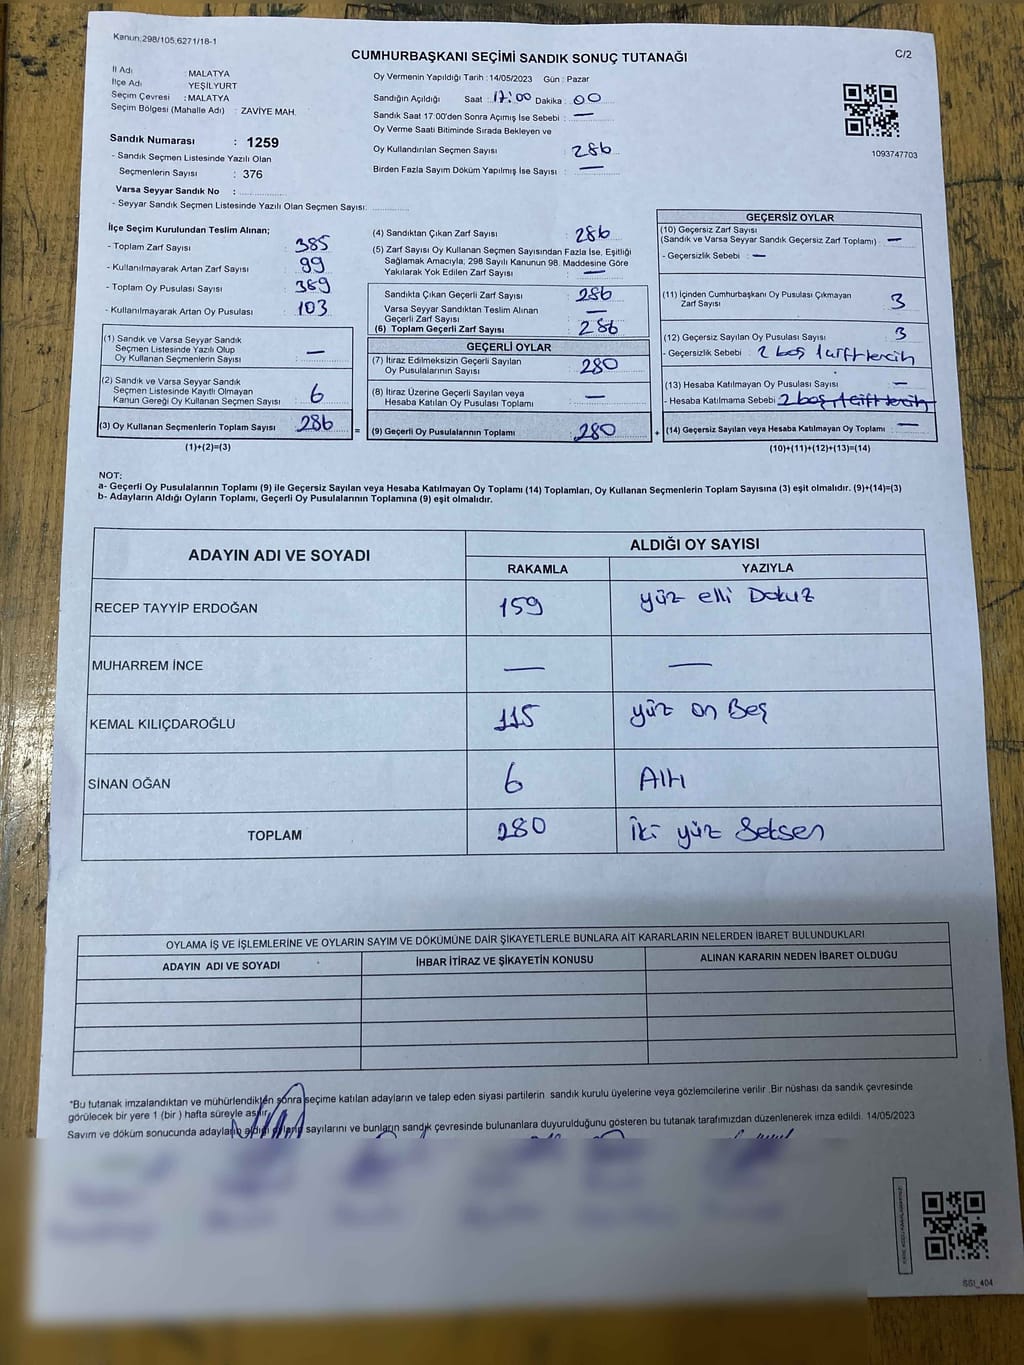 Kanun;298/105,6271/18-1
CUMHURBAŞKANI SEÇİMİ SANDIK SONUÇ TUTANAĞI
C/2
İl Adı : MALATYA
İlçe Adı : YEŞİLYURT
Seçim Çevresi : MALATYA
Seçim Bölgesi (Mahalle Adı) : ZAVİYE MAH.
Sandık Numarası : 1259
- Sandık Seçmen Listesinde Yazılı Olan
Seçmenlerin Sayısı : 376
Varsa Seyyar Sandık No :
- Seyyar Sandık Seçmen Listesinde Yazılı Olan Seçmen Sayısı:
Oy Vermenin Yapıldığı Tarih :14/05/2023 Gün : Pazar
Sandığın Açıldığı Saat : 17:00 Dakika : 00
Sandık Saat 17:00'den Sonra Açımış İse Sebebi : —
Oy Verme Saati Bitiminde Sırada Bekleyen ve
Oy Kullandırılan Seçmen Sayısı 286
Birden Fazla Sayım Döküm Yapılmış İse Sayısı : —
1093747703
İlçe Seçim Kurulundan Teslim Alınan;
- Toplam Zarf Sayısı : 385
- Kullanılmayarak Artan Zarf Sayısı : 99
- Toplam Oy Pusulası Sayısı : 389
- Kullanılmayarak Artan Oy Pusulası : 103
(1) Sandık ve Varsa Seyyar Sandık
Seçmen Listesinde Yazılı Olup
Oy Kullanan Seçmenlerin Sayısı : —
(2) Sandık ve Varsa Seyyar Sandık
Seçmen Listesinde Kayıtlı Olmayan
Kanun Gereği Oy Kullanan Seçmen Sayısı : 6
(3) Oy Kullanan Seçmenlerin Toplam Sayısı : 286
(1)+(2)=(3)
(4) Sandıktan Çıkan Zarf Sayısı : 286
(5) Zarf Sayısı Oy Kullanan Seçmen Sayısından Fazla İse, Eşitliği
Sağlamak Amacıyla, 298 Sayılı Kanunun 98. Maddesine Göre
Yakılarak Yok Edilen Zarf Sayısı : —
Sandıkta Çıkan Geçerli Zarf Sayısı : 286
Varsa Seyyar Sandıktan Teslim Alınan
Geçerli Zarf Sayısı : —
(6) Toplam Geçerli Zarf Sayısı : 286
GEÇERLİ OYLAR
(7) İtiraz Edilmeksizin Geçerli Sayılan
Oy Pusulalarının Sayısı : 280
(8) İtiraz Üzerine Geçerli Sayılan veya
Hesaba Katılan Oy Pusulası Toplamı : —
= (9) Geçerli Oy Pusulalarının Toplamı : 280 +
GEÇERSİZ OYLAR
(10) Geçersiz Zarf Sayısı
(Sandık ve Varsa Seyyar Sandık Geçersiz Zarf Toplamı) : —
- Geçersizlik Sebebi : —
(11) İçinden Cumhurbaşkanı Oy Pusulası Çıkmayan
Zarf Sayısı : 3
(12) Geçersiz Sayılan Oy Pusulası Sayısı : 3
- Geçersizlik Sebebi : 2 boş 1 çift tercih
(13) Hesaba Katılmayan Oy Pusulası Sayısı : —
- Hesaba Katılmama Sebebi : 2 boş 1 çift tercih
(14) Geçersiz Sayılan veya Hesaba Katılmayan Oy Toplamı : —
(10)+(11)+(12)+(13)=(14)
NOT:
a- Geçerli Oy Pusulalarının Toplamı (9) ile Geçersiz Sayılan veya Hesaba Katılmayan Oy Toplamı (14) Toplamları, Oy Kullanan Seçmenlerin Toplam Sayısına (3) eşit olmalıdır. (9)+(14)=(3)
b- Adayların Aldığı Oyların Toplamı, Geçerli Oy Pusulalarının Toplamına (9) eşit olmalıdır.
ADAYIN ADI VE SOYADI
ALDIĞI OY SAYISI
RAKAMLA YAZIYLA
RECEP TAYYİP ERDOĞAN 159 yüz elli Dokuz
MUHARREM İNCE — —
KEMAL KILIÇDAROĞLU 115 yüz on Beş
SİNAN OĞAN 6 Altı
TOPLAM 280 İki yüz Seksen
OYLAMA İŞ VE İŞLEMLERİNE VE OYLARIN SAYIM VE DÖKÜMÜNE DAİR ŞİKAYETLERLE BUNLARA AİT KARARLARIN NELERDEN İBARET BULUNDUKLARI
ADAYIN ADI VE SOYADI İHBAR İTİRAZ VE ŞİKAYETİN KONUSU ALINAN KARARIN NEDEN İBARET OLDUĞU
*Bu tutanak imzalandıktan ve mühürlendikten sonra seçime katılan adayların ve talep eden siyasi partilerin sandık kurulu üyelerine veya gözlemcilerine verilir .Bir nüshası da sandık çevresinde
görülecek bir yere 1 (bir ) hafta süreyle asılır.
Sayım ve döküm sonucunda adayların aldığı oyların sayılarını ve bunların sandık çevresinde bulunanlara duyurulduğunu gösteren bu tutanak tarafımızdan düzenlenerek imza edildi. 14/05/2023
SSI_404